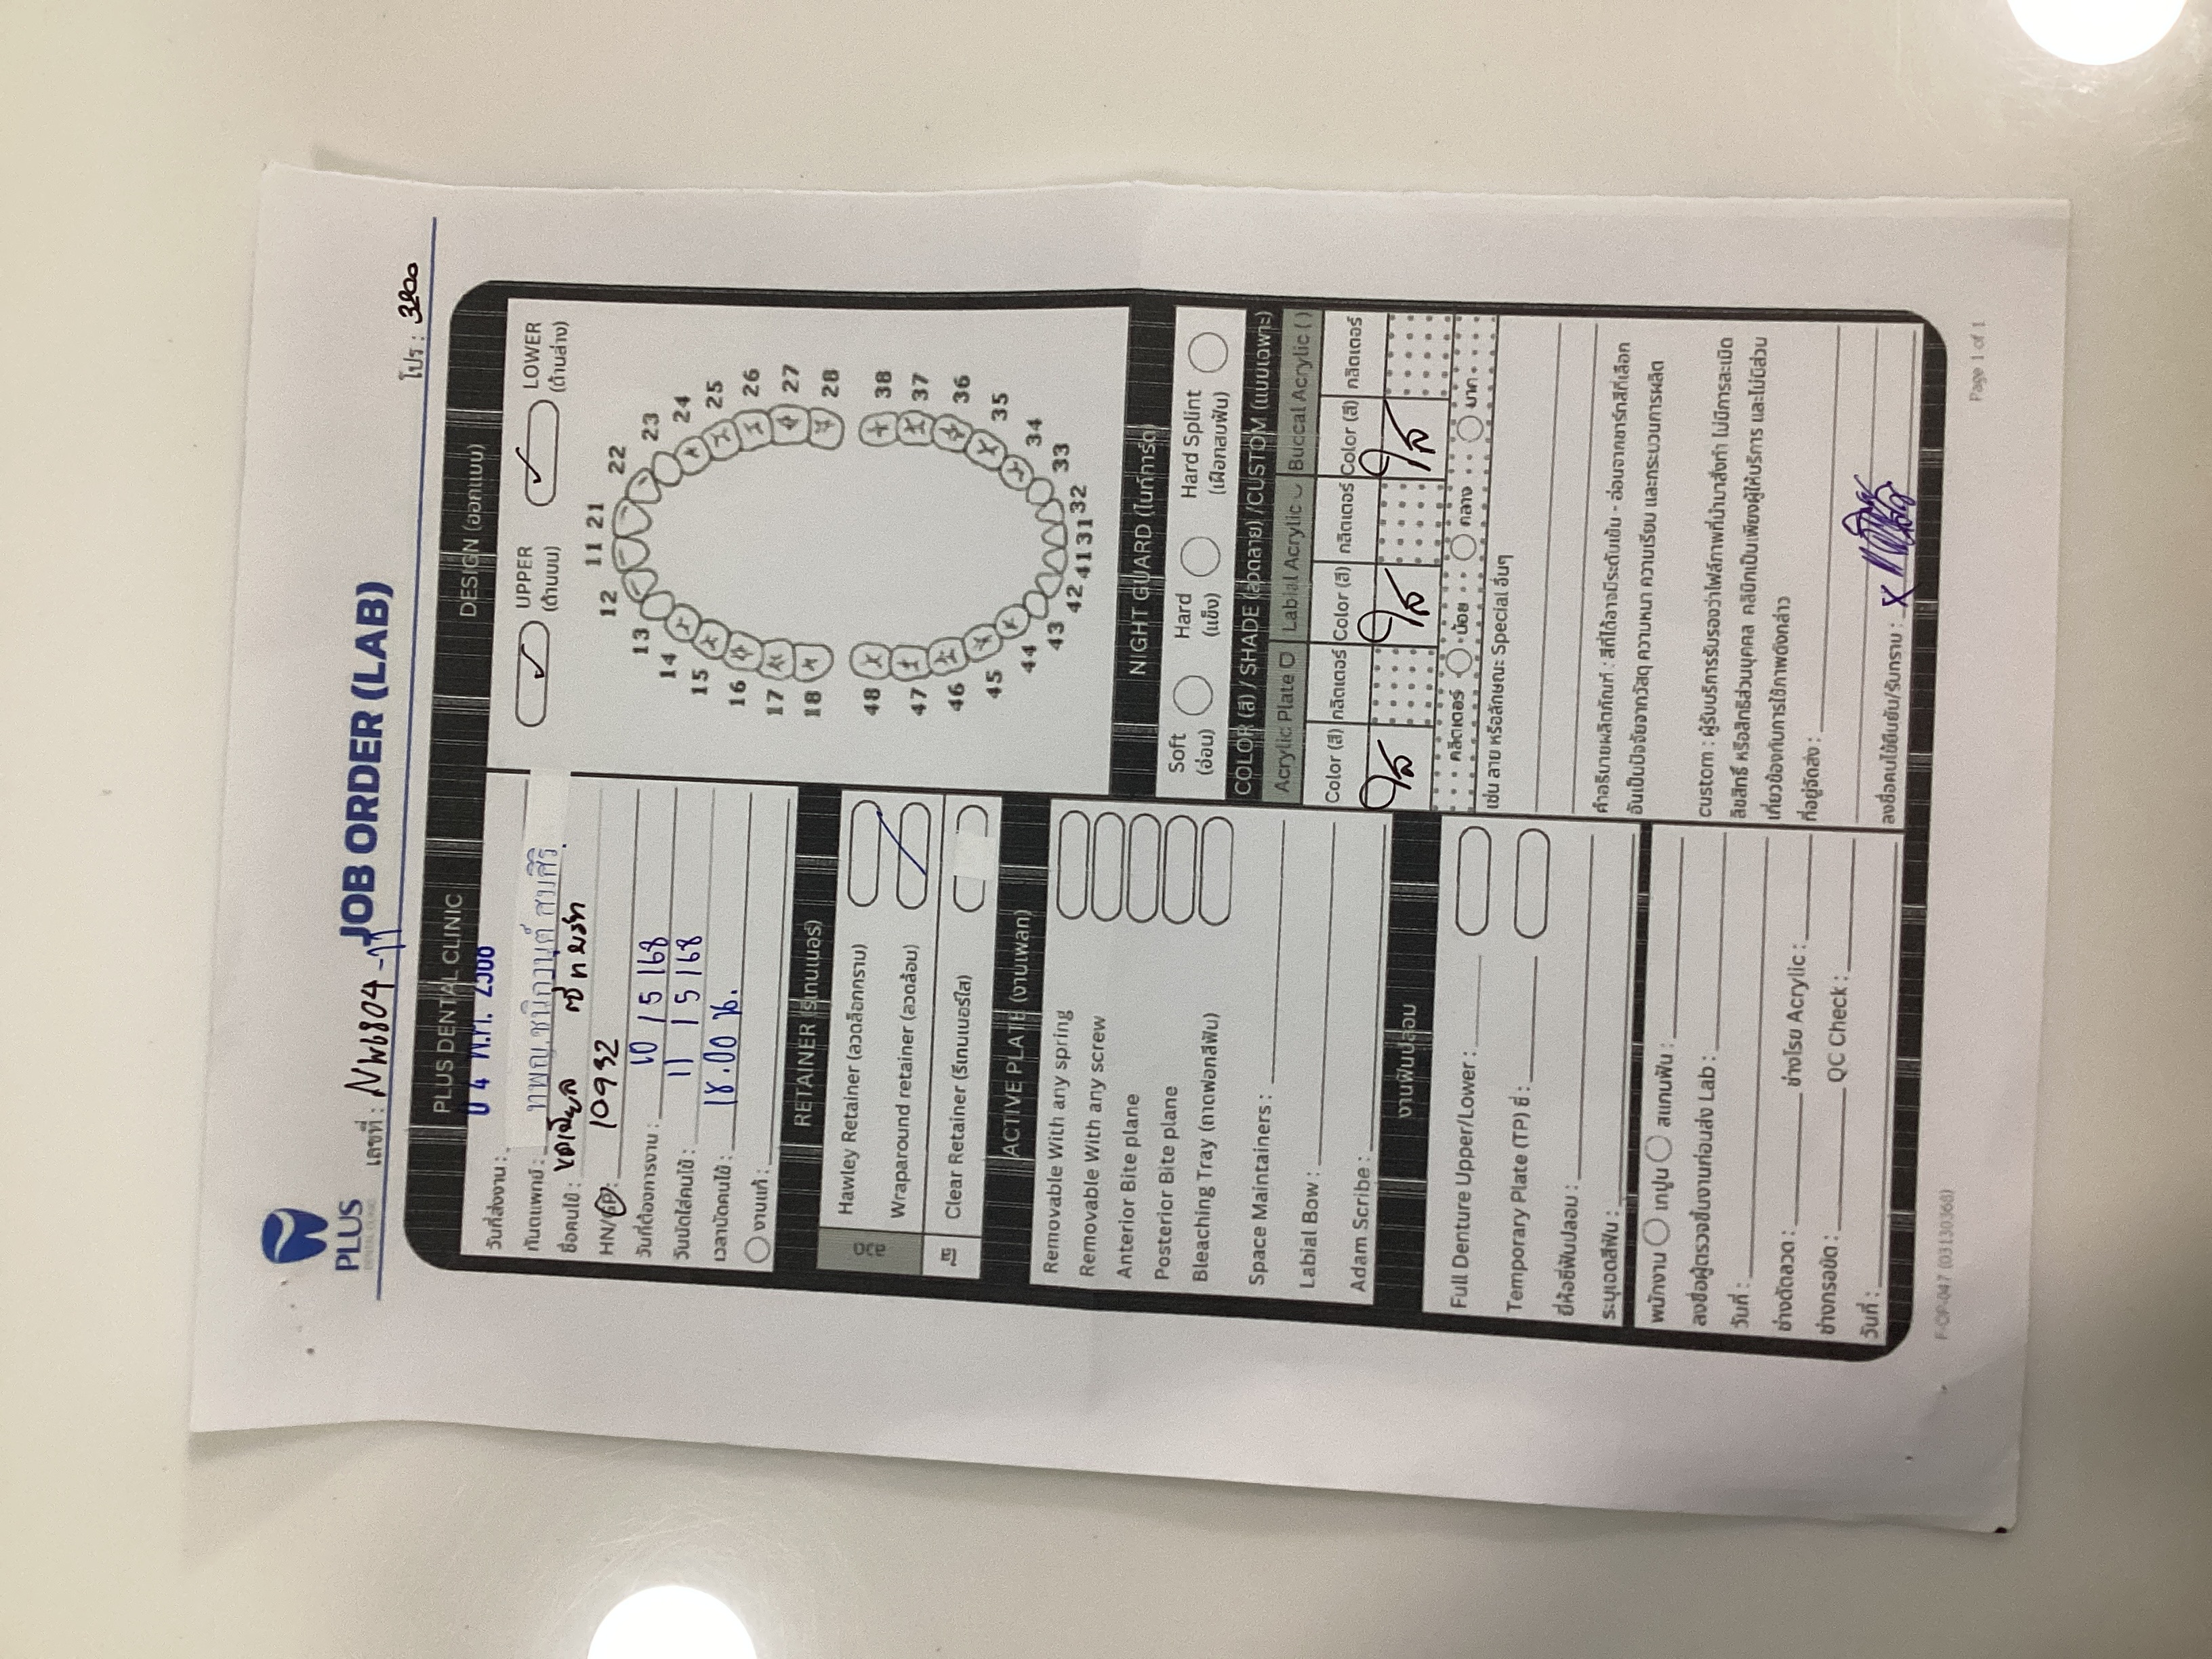 PLUS
DENTAL CLINIC
เลขที่ : NW6804-11
JOB ORDER (LAB)
โปร : 3200
PLUS DENTAL CLINIC
วันที่ส่งงาน : 0 4 พ.ค. 2568
ทันตแพทย์ : ทพญ.ชนิกานต์ สมศิริ
ชื่อคนไข้ :
HN/GP: 10932
วันที่ต้องการงาน : 10 / 5 / 68
วันนัดใส่คนไข้ : 11 / 5 / 68
เวลานัดคนไข้ : 18.00 น.
งานแก้ :
RETAINER (รีเทนเนอร์)
ลวด
Hawley Retainer (ลวดล็อกกราม)
Wraparound retainer (ลวดล้อม)
ใส
Clear Retainer (รีเทนเนอร์ใส)
ACTIVE PLATE (งานเพลท)
Removable With any spring
Removable With any screw
Anterior Bite plane
Posterior Bite plane
Bleaching Tray (ถาดฟอกสีฟัน)
Space Maintainers :
Labial Bow :
Adam Scribe :
งานฟันปลอม
Full Denture Upper/Lower :
Temporary Plate (TP) ซี่ :
ยี่ห้อซี่ฟันปลอม :
ระบุเฉดสีฟัน :
พนักงาน เทปูน สแกนฟัน :
ลงชื่อผู้ตรวจชิ้นงานก่อนส่ง Lab :
วันที่ :
ช่างดัดลวด : ช่างโรย Acrylic :
ช่างกรอขัด : QC Check :
วันที่ :
DESIGN (ออกแบบ)
UPPER
(ด้านบน)
LOWER
(ด้านล่าง)
11 21
12 22
13 23
14 24
15 25
16 26
17 27
18 28
48 38
47 37
46 36
45 35
44 34
43 33
42 41 31 32
NIGHT GUARD (ไนท์การ์ด)
Soft
(อ่อน)
Hard
(แข็ง)
Hard Splint
(เฝือกสบฟัน)
COLOR (สี) / SHADE (ลวดลาย) /CUSTOM (แบบเฉพาะ)
Acrylic Plate Labial Acrylic Buccal Acrylic ( )
Color (สี) กลิตเตอร์ Color (สี) กลิตเตอร์ Color (สี) กลิตเตอร์
ใส ใส ใส
คลิตเตอร์ น้อย กลาง มาก
เช่น ลาย หรือลักษณะ Special อื่นๆ
คำอธิบายผลิตภัณฑ์ : สีที่ได้อาจมีระดับเข้ม - อ่อนจากชาร์ทสีที่เลือก
อันเป็นปัจจัยจากวัสดุ ความหนา ความเรียบ และกระบวนการผลิต
custom : ผู้รับบริการรับรองว่าไฟล์ภาพที่นำมาสั่งทำ ไม่มีการละเมิด
ลิขสิทธิ์ หรือสิทธิส่วนบุคคล คลินิกเป็นเพียงผู้ให้บริการ และไม่มีส่วน
เกี่ยวข้องกับการใช้ภาพดังกล่าว
ที่อยู่จัดส่ง :
ลงชื่อคนไข้ยืนยัน/รับทราบ : x
F-OP-047 (03130368)
Page 1 of 1